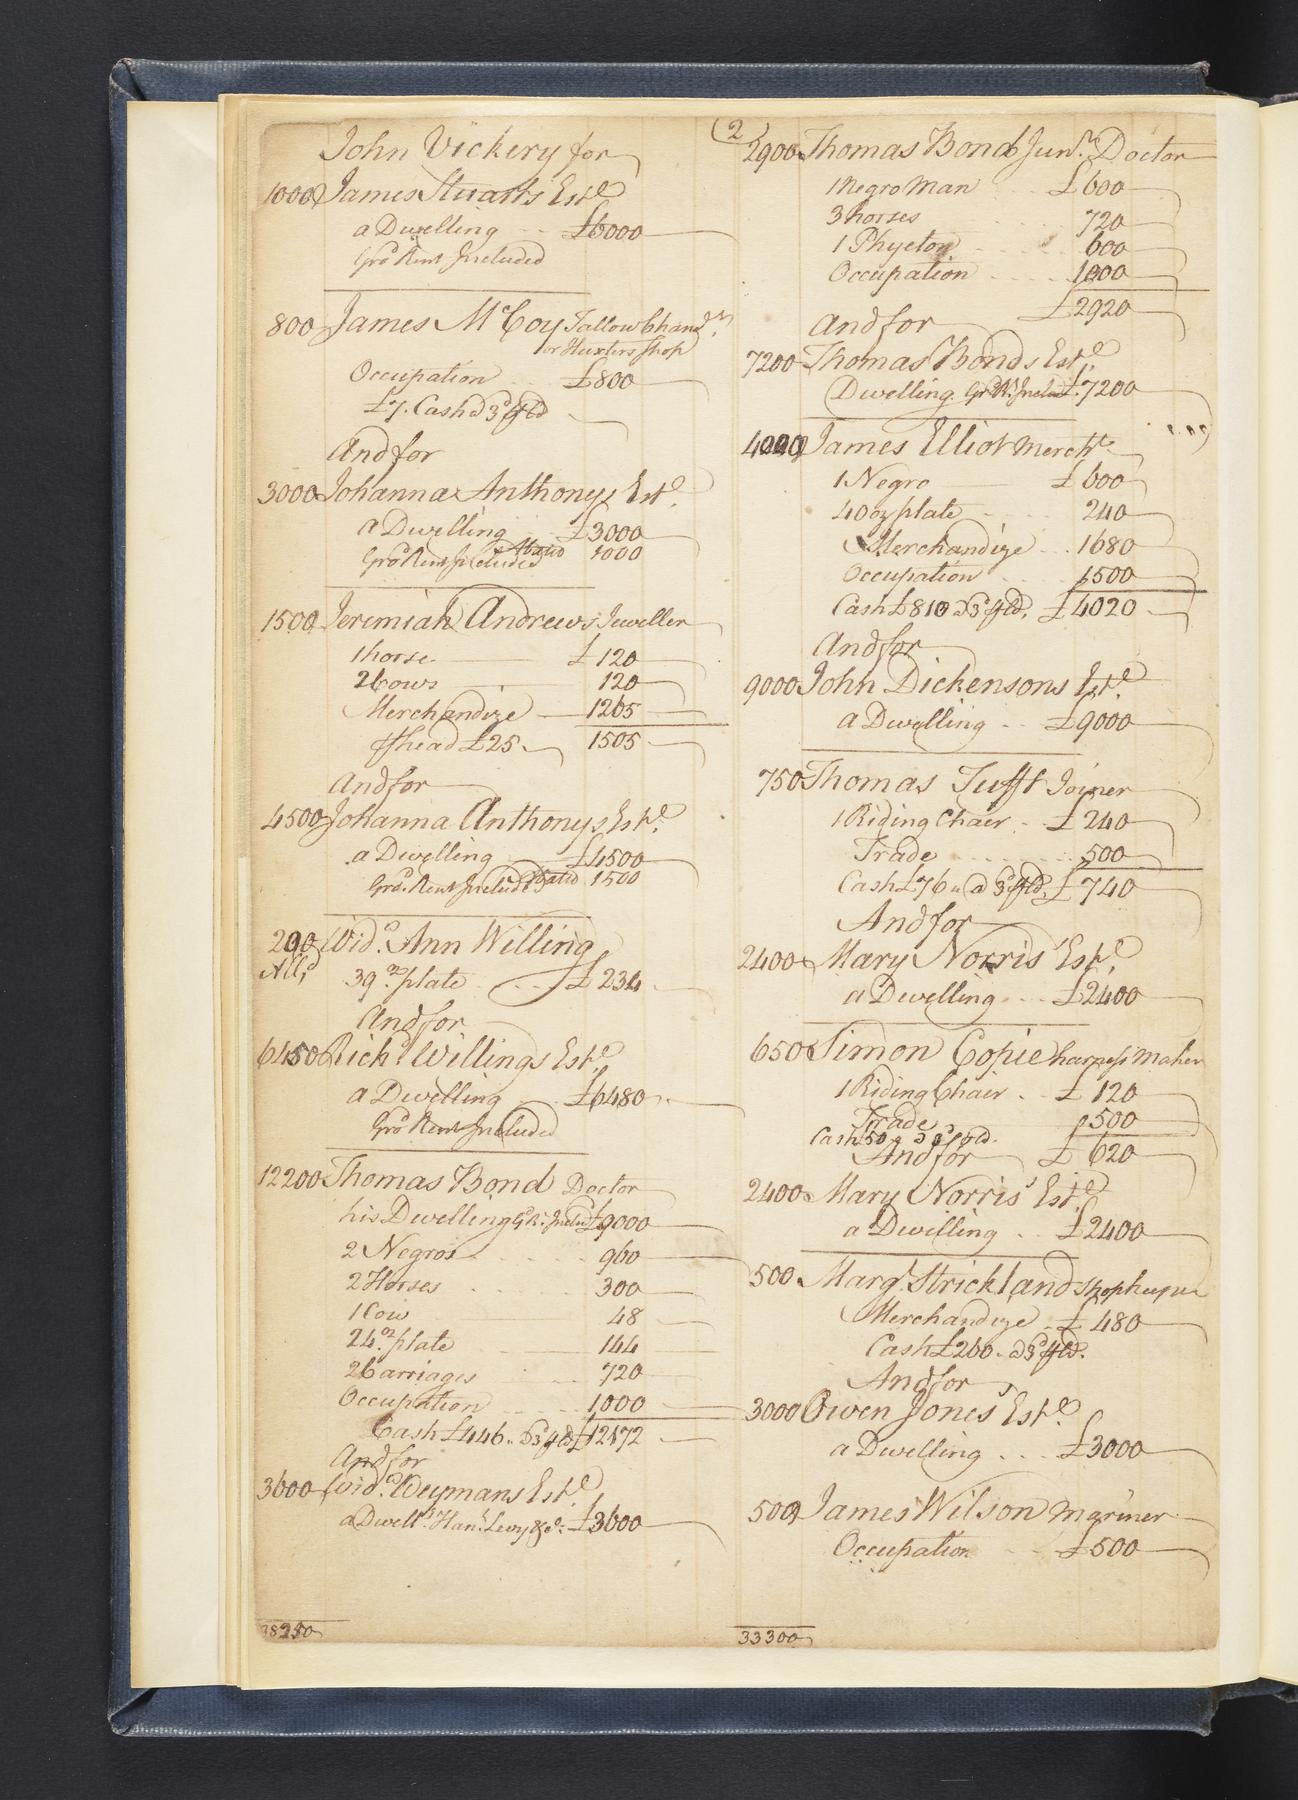 (2)
John Vickery for
1000 James Stuarts Estd.
a Dwelling £6000
Grod. Rent Included
800 James McCoy Tallow Chandr.
or Huxters Shop
Occupation £800
£7. Cash
And for
3000 Johanna Anthonys Estd.
a Dwelling £3000
Grod. Rent Included Abated 1000
1500 Jeremiah Andrews Jeweller
1 horse £120
2 Cows 120
Merchandize 1265
head £25 1505
And for
4500 Johanna Anthonys Estd.
a Dwelling £4500
Grod. Rent Included Abated 1500
290 Widd. Ann Willing
39 oz. plate £234
And for
6450 Richd. Willings Estd.
a Dwelling £6480
Grod. Rent Included
12200 Thomas Bond Doctor
his Dwelling Gd. Rt. Includ £9000
2 Negros 960
2 Horses 300
1 Cow 48
24 oz. plate 144
2 Carriages 720
Occupation 1000
Cash £446 £12172
And for
3600 Widd. Weymans Estd.
a Dwellg. Levy £3600
38250
2900 Thomas Bond Junr. Doctor
1 Negro Man £600
3 horses 720
1 Phyeton 600
Occupation 1000
£2920
And for
7200 Thomas Bonds Estd.
Dwelling Gr Rt. Includ. £7200
4000 James Elliot Mercht.
1 Negro £600
40 oz plate 240
Merchandize 1680
Occupation 1500
Cash £810 £4020
And for
9000 John Dickensons Estd.
a Dwelling £9000
750 Thomas Tufft Joiner
1 Riding Chair £240
Trade 500
Cash £76 £740
And for
2400 Mary Norris' Estd.
a Dwelling £2400
650 Simon Copie harness maker
1 Riding Chair £120
Trade 500
Cash 50
And for £620
2400 Mary Norris' Estd.
a Dwelling £2400
500 Margt. Strickland Shopkeeper
Merchandize £480
Cash £260
And for
3000 Owen Jones' Estd.
a Dwelling £3000
500 James Wilson Mariner
Occupation £500
33300